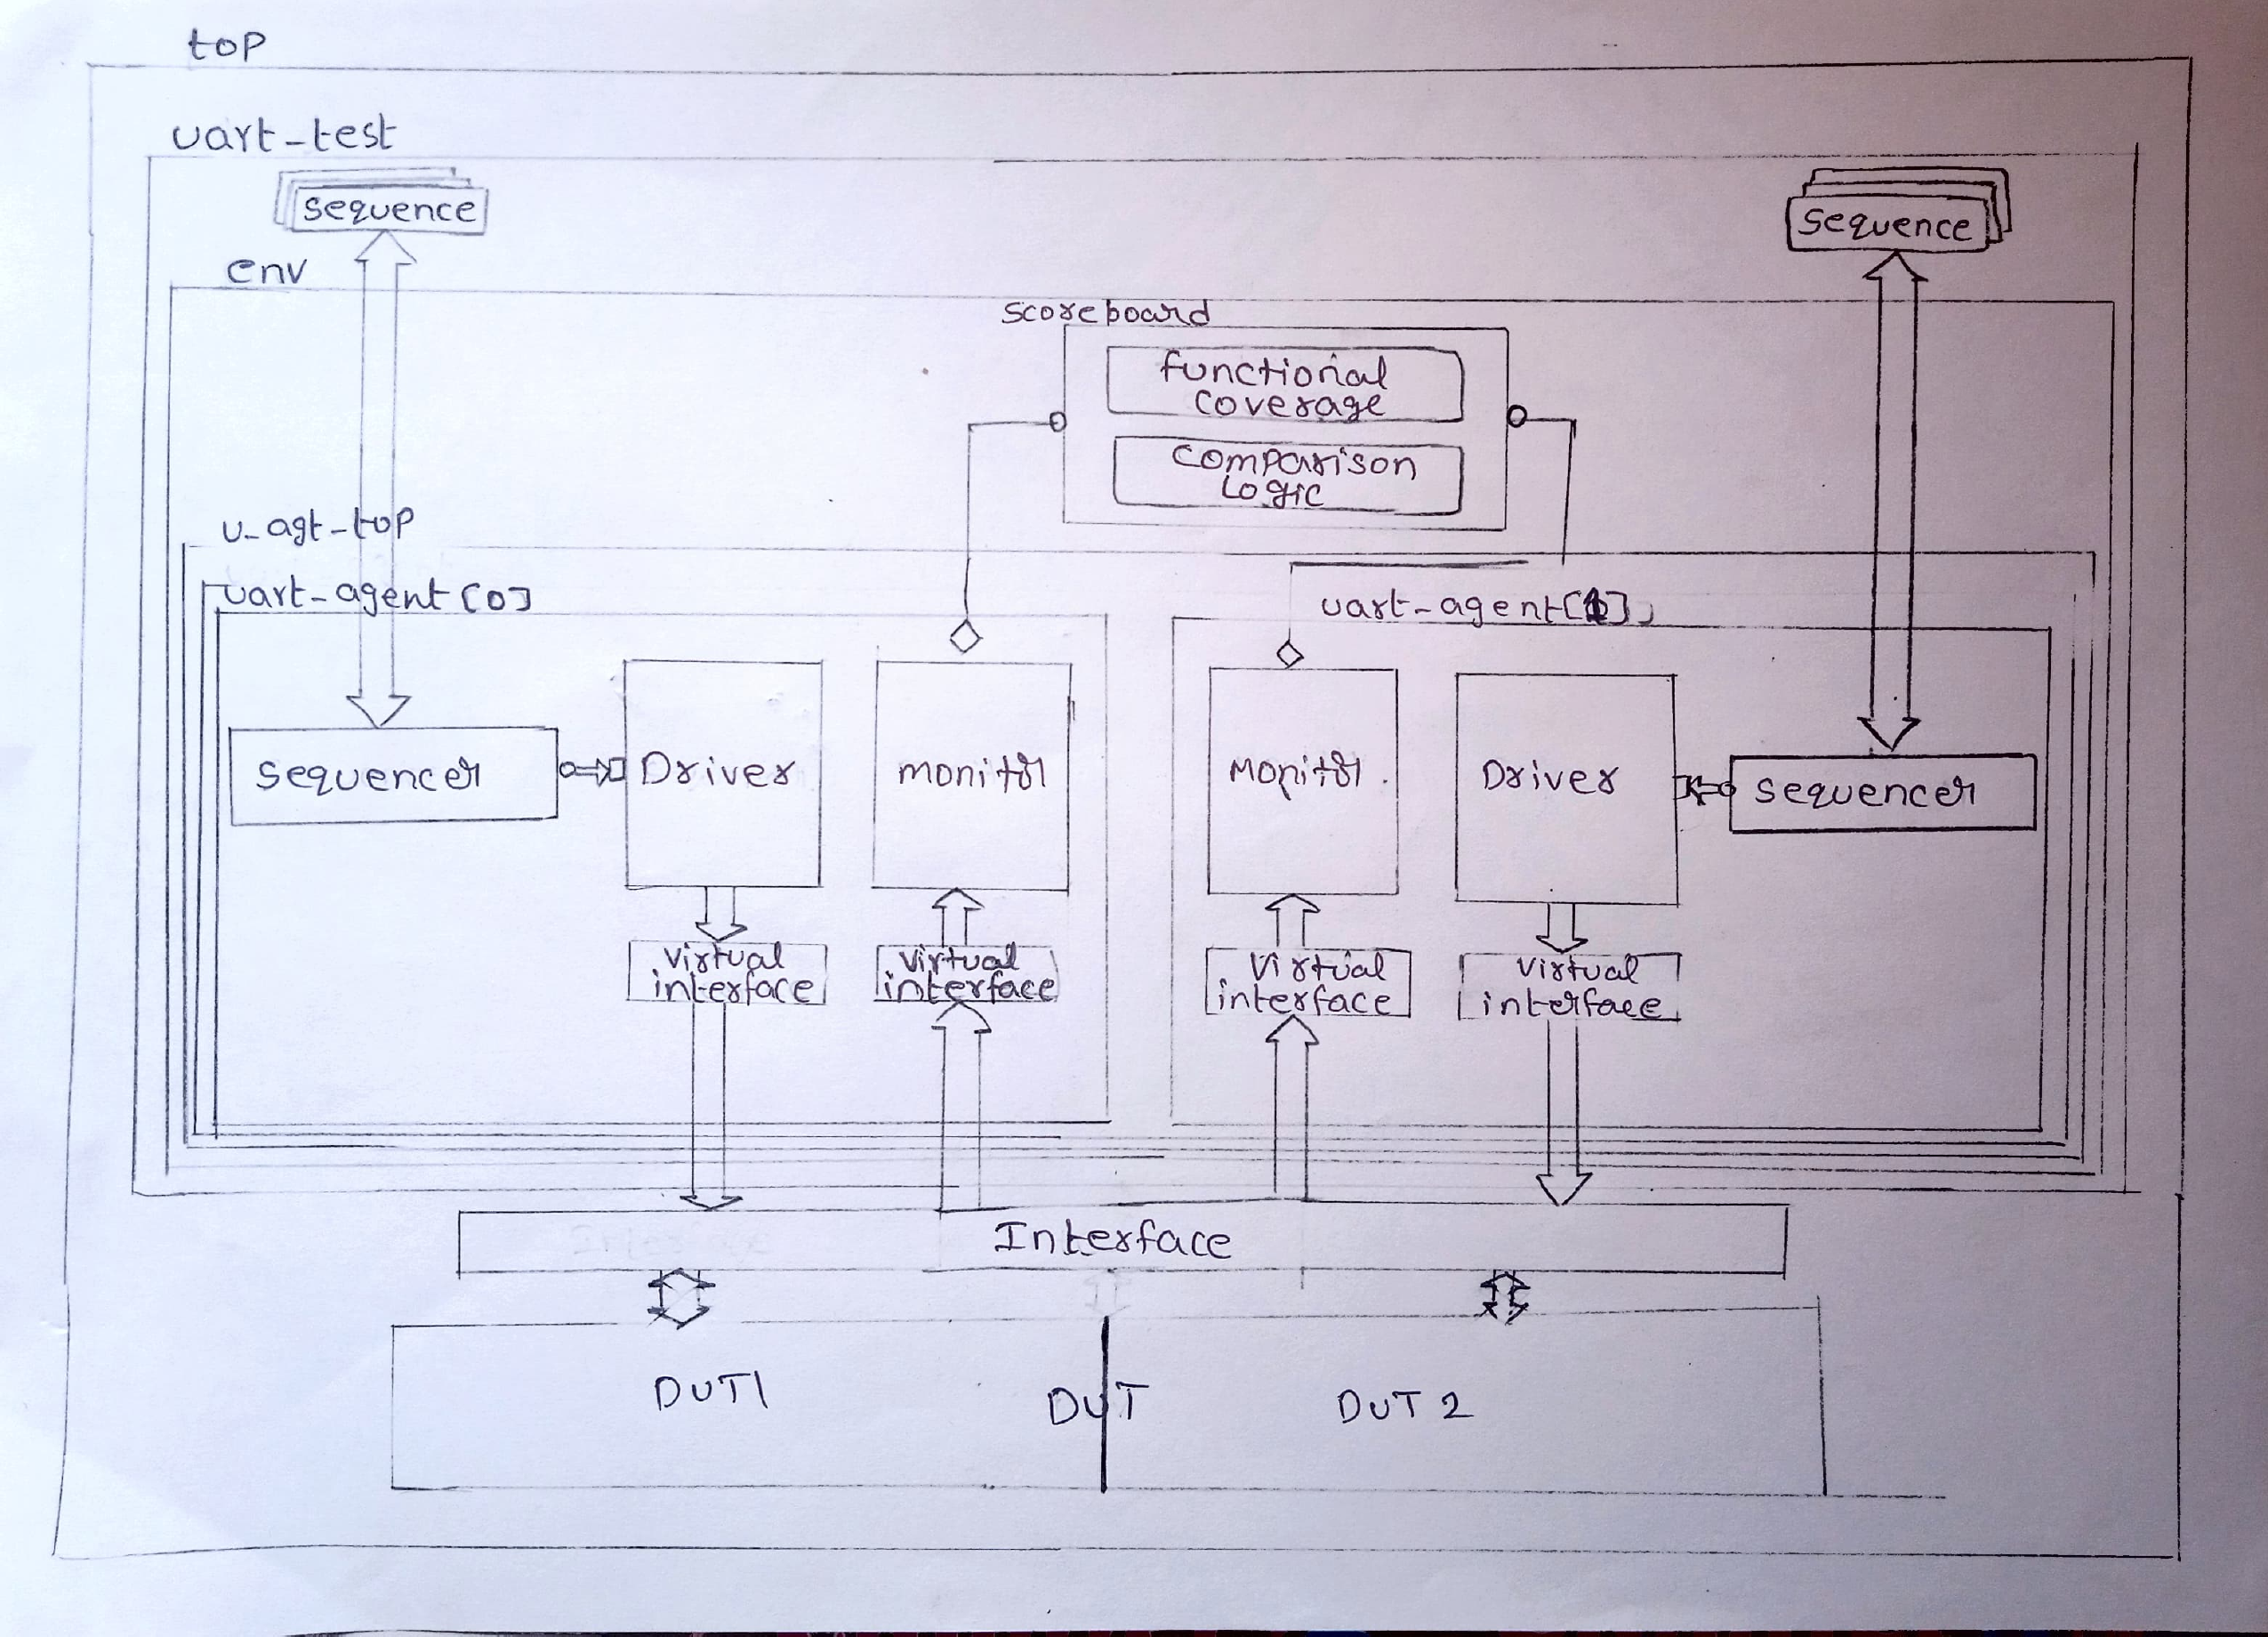 top
uart-test
sequence
sequence
env
scoreboard
functional
coverage
comparison
Logic
u-agt-top
uart-agent[0]
uart-agent[1]
sequencer
Driver
monitor
Monitor
Driver
sequencer
virtual
interface
virtual
interface
virtual
interface
virtual
interface
Interface
DUT1
DUT
DUT 2